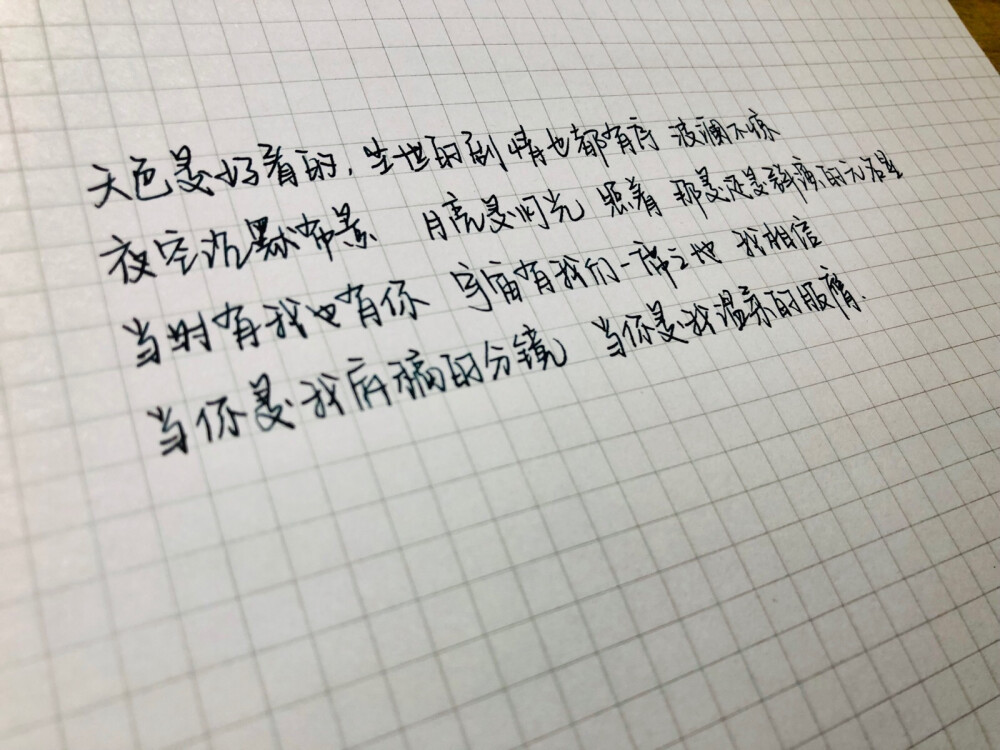 天色是好看的,尘世的剧情也都有序 波澜不惊
夜空沉默布景 月亮是灯光 照着 那是还是群演的无名星
当时有我也有你 宇宙有我们一席之地 我相信
当你是我痛的分镜 当你是我温柔的服膺.